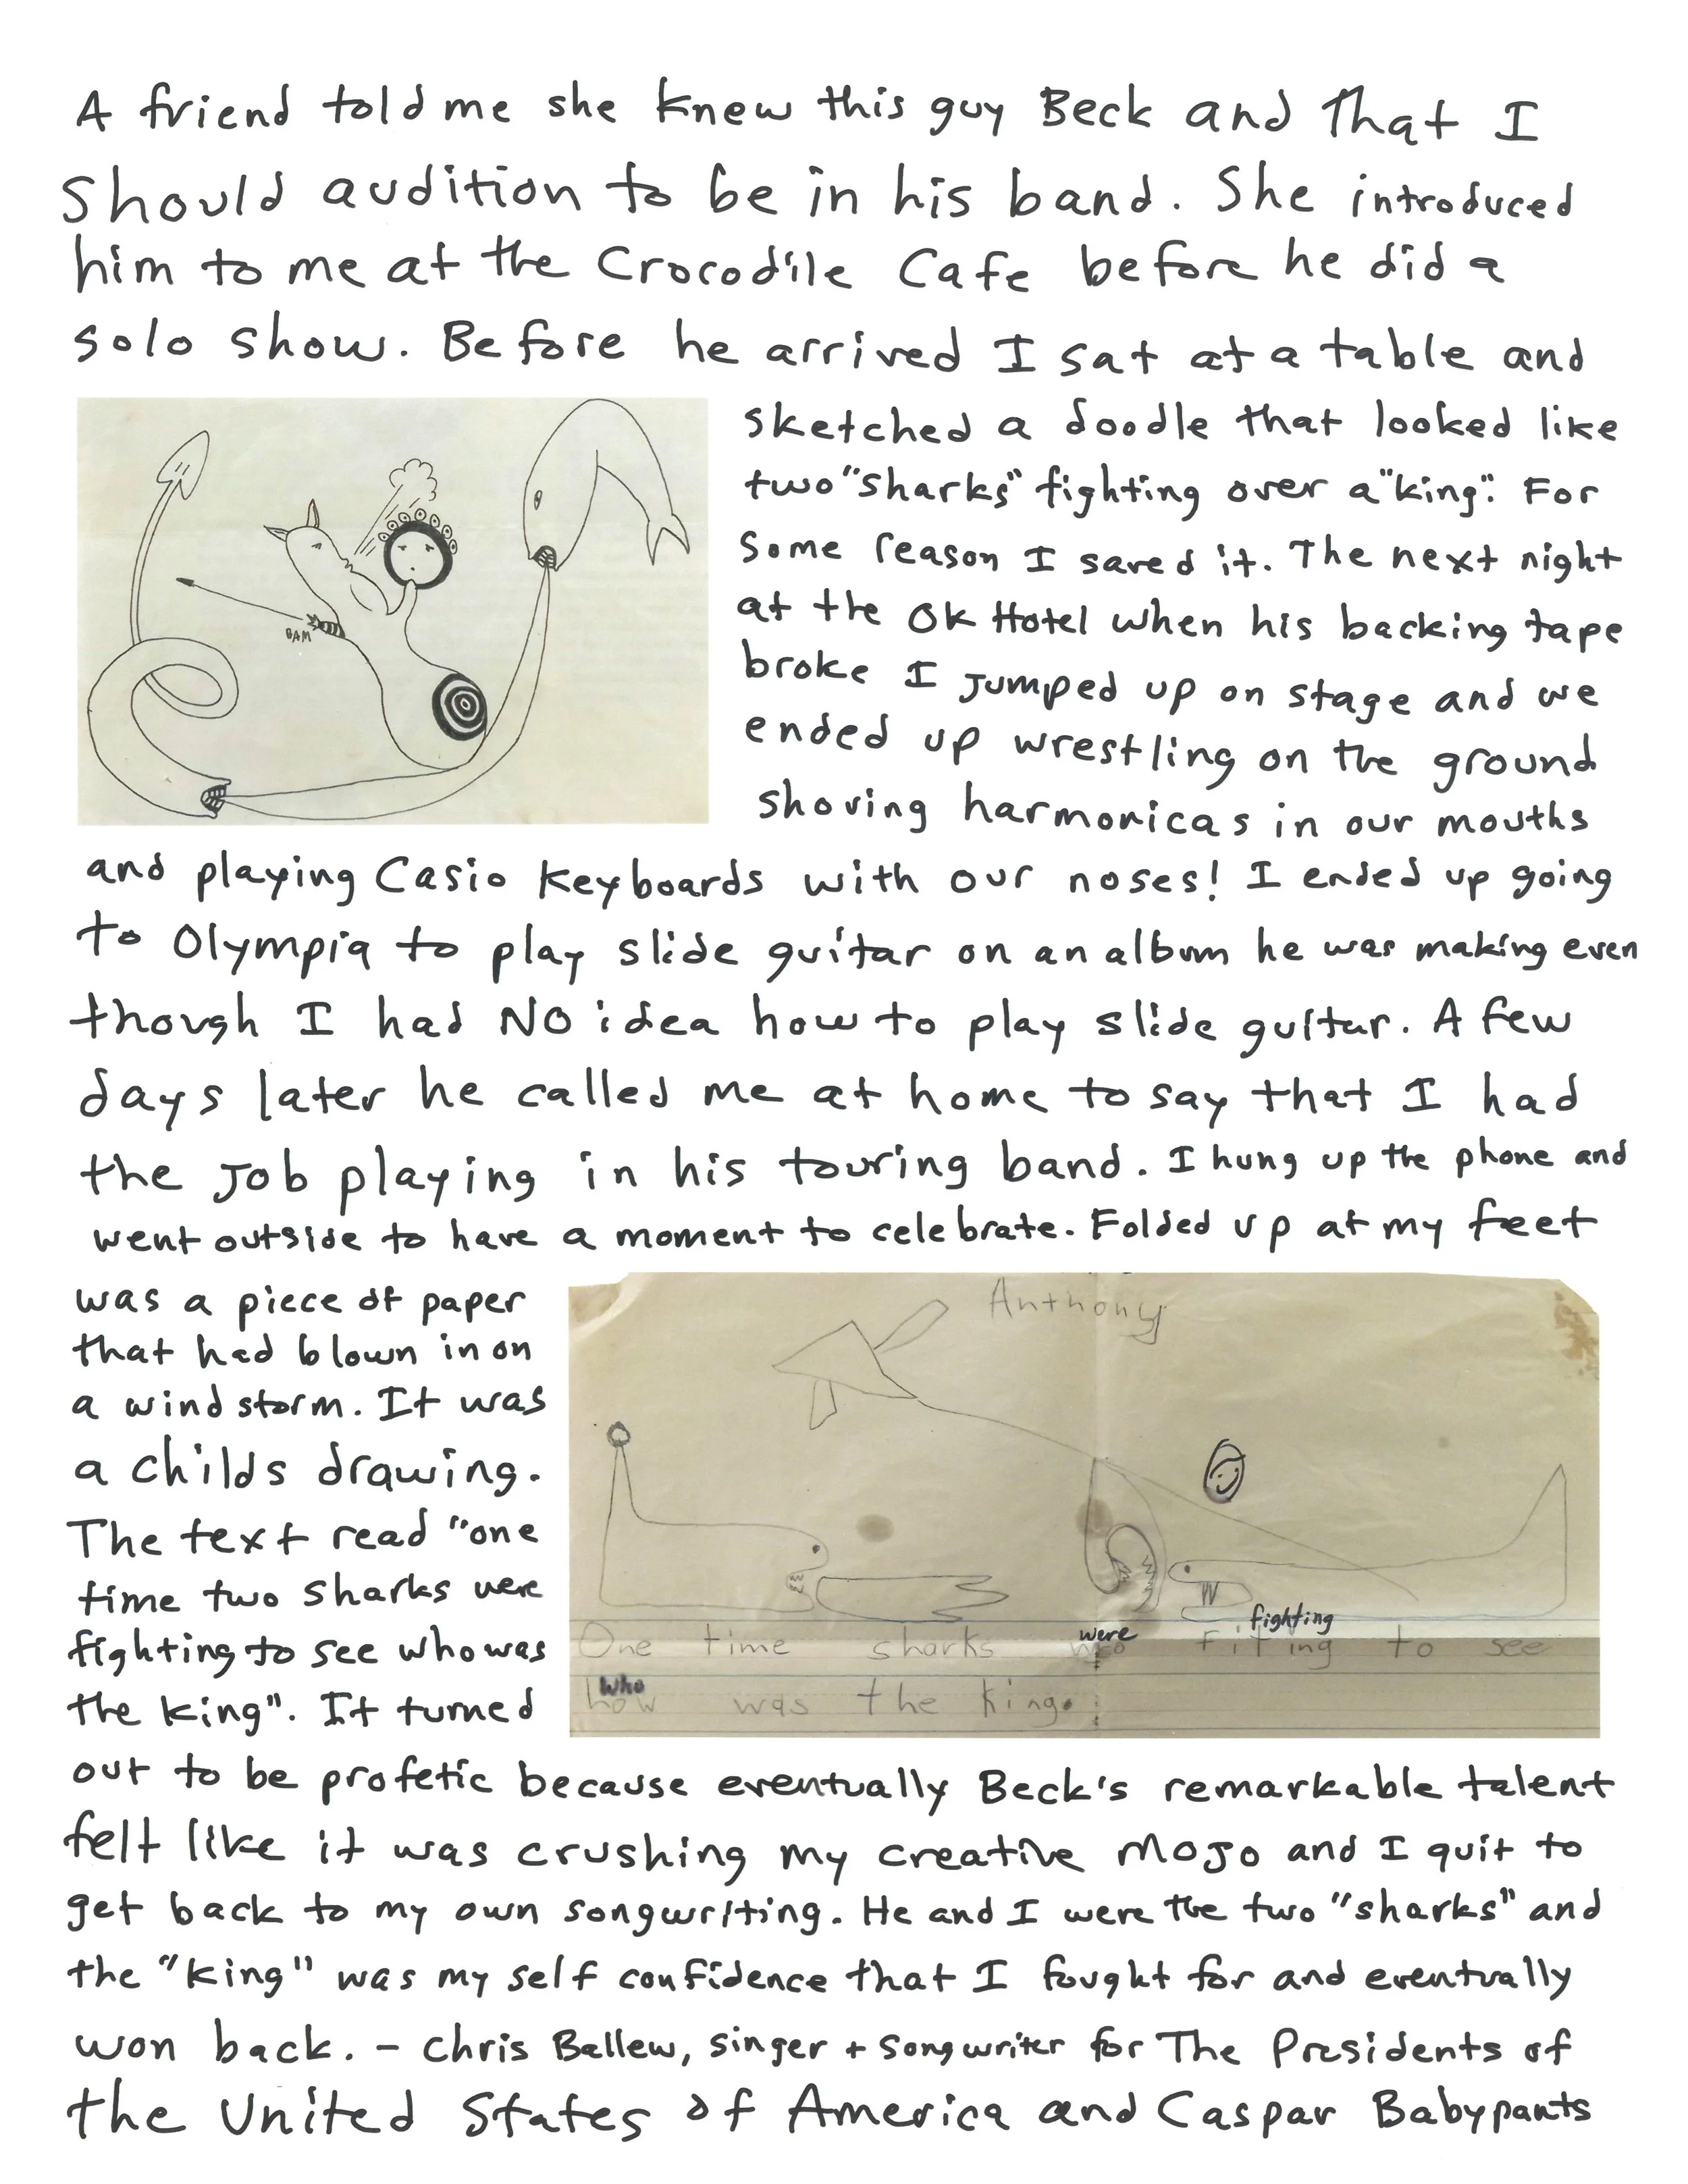 A friend told me she knew this guy Beck and that I
should audition to be in his band. She introduced
him to me at the Crocodile Cafe before he did a
solo show. Before he arrived I sat at a table and
sketched a doodle that looked like
two "sharks" fighting over a "king". For
some reason I saved it. The next night
at the OK Hotel when his backing tape
broke I jumped up on stage and we
ended up wrestling on the ground
shoving harmonicas in our mouths
BAM
and playing Casio keyboards with our noses! I ended up going
to Olympia to play slide guitar on an album he was making even
though I had NO idea how to play slide guitar. A few
days later he called me at home to say that I had
the job playing in his touring band. I hung up the phone and
went outside to have a moment to celebrate. Folded up at my feet
was a piece of paper
that had blown in on
a wind storm. It was
a childs drawing.
The text read "one
time two sharks were
fighting to see who was
the king". It turned
Anthony
fighting
were
One time sharks fiting to see
who
how was the king.
out to be profetic because eventually Beck's remarkable talent
felt like it was crushing my creative mojo and I quit to
get back to my own songwriting. He and I were the two "sharks" and
the "king" was my self confidence that I fought for and eventually
won back. - Chris Ballew, singer + songwriter for The Presidents of
the United States of America and Caspar Babypants